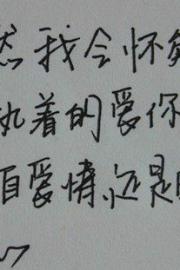 然我会怀
执着的爱你
自爱情,还是